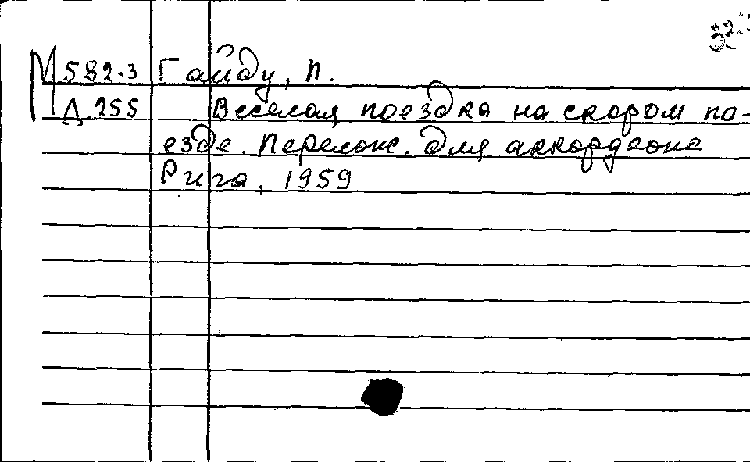 32
М 582.3 Гайду, П.
Д 255 Веселая поездка на скором по-
езде. Перелож. для аккордеона
Рига, 1959